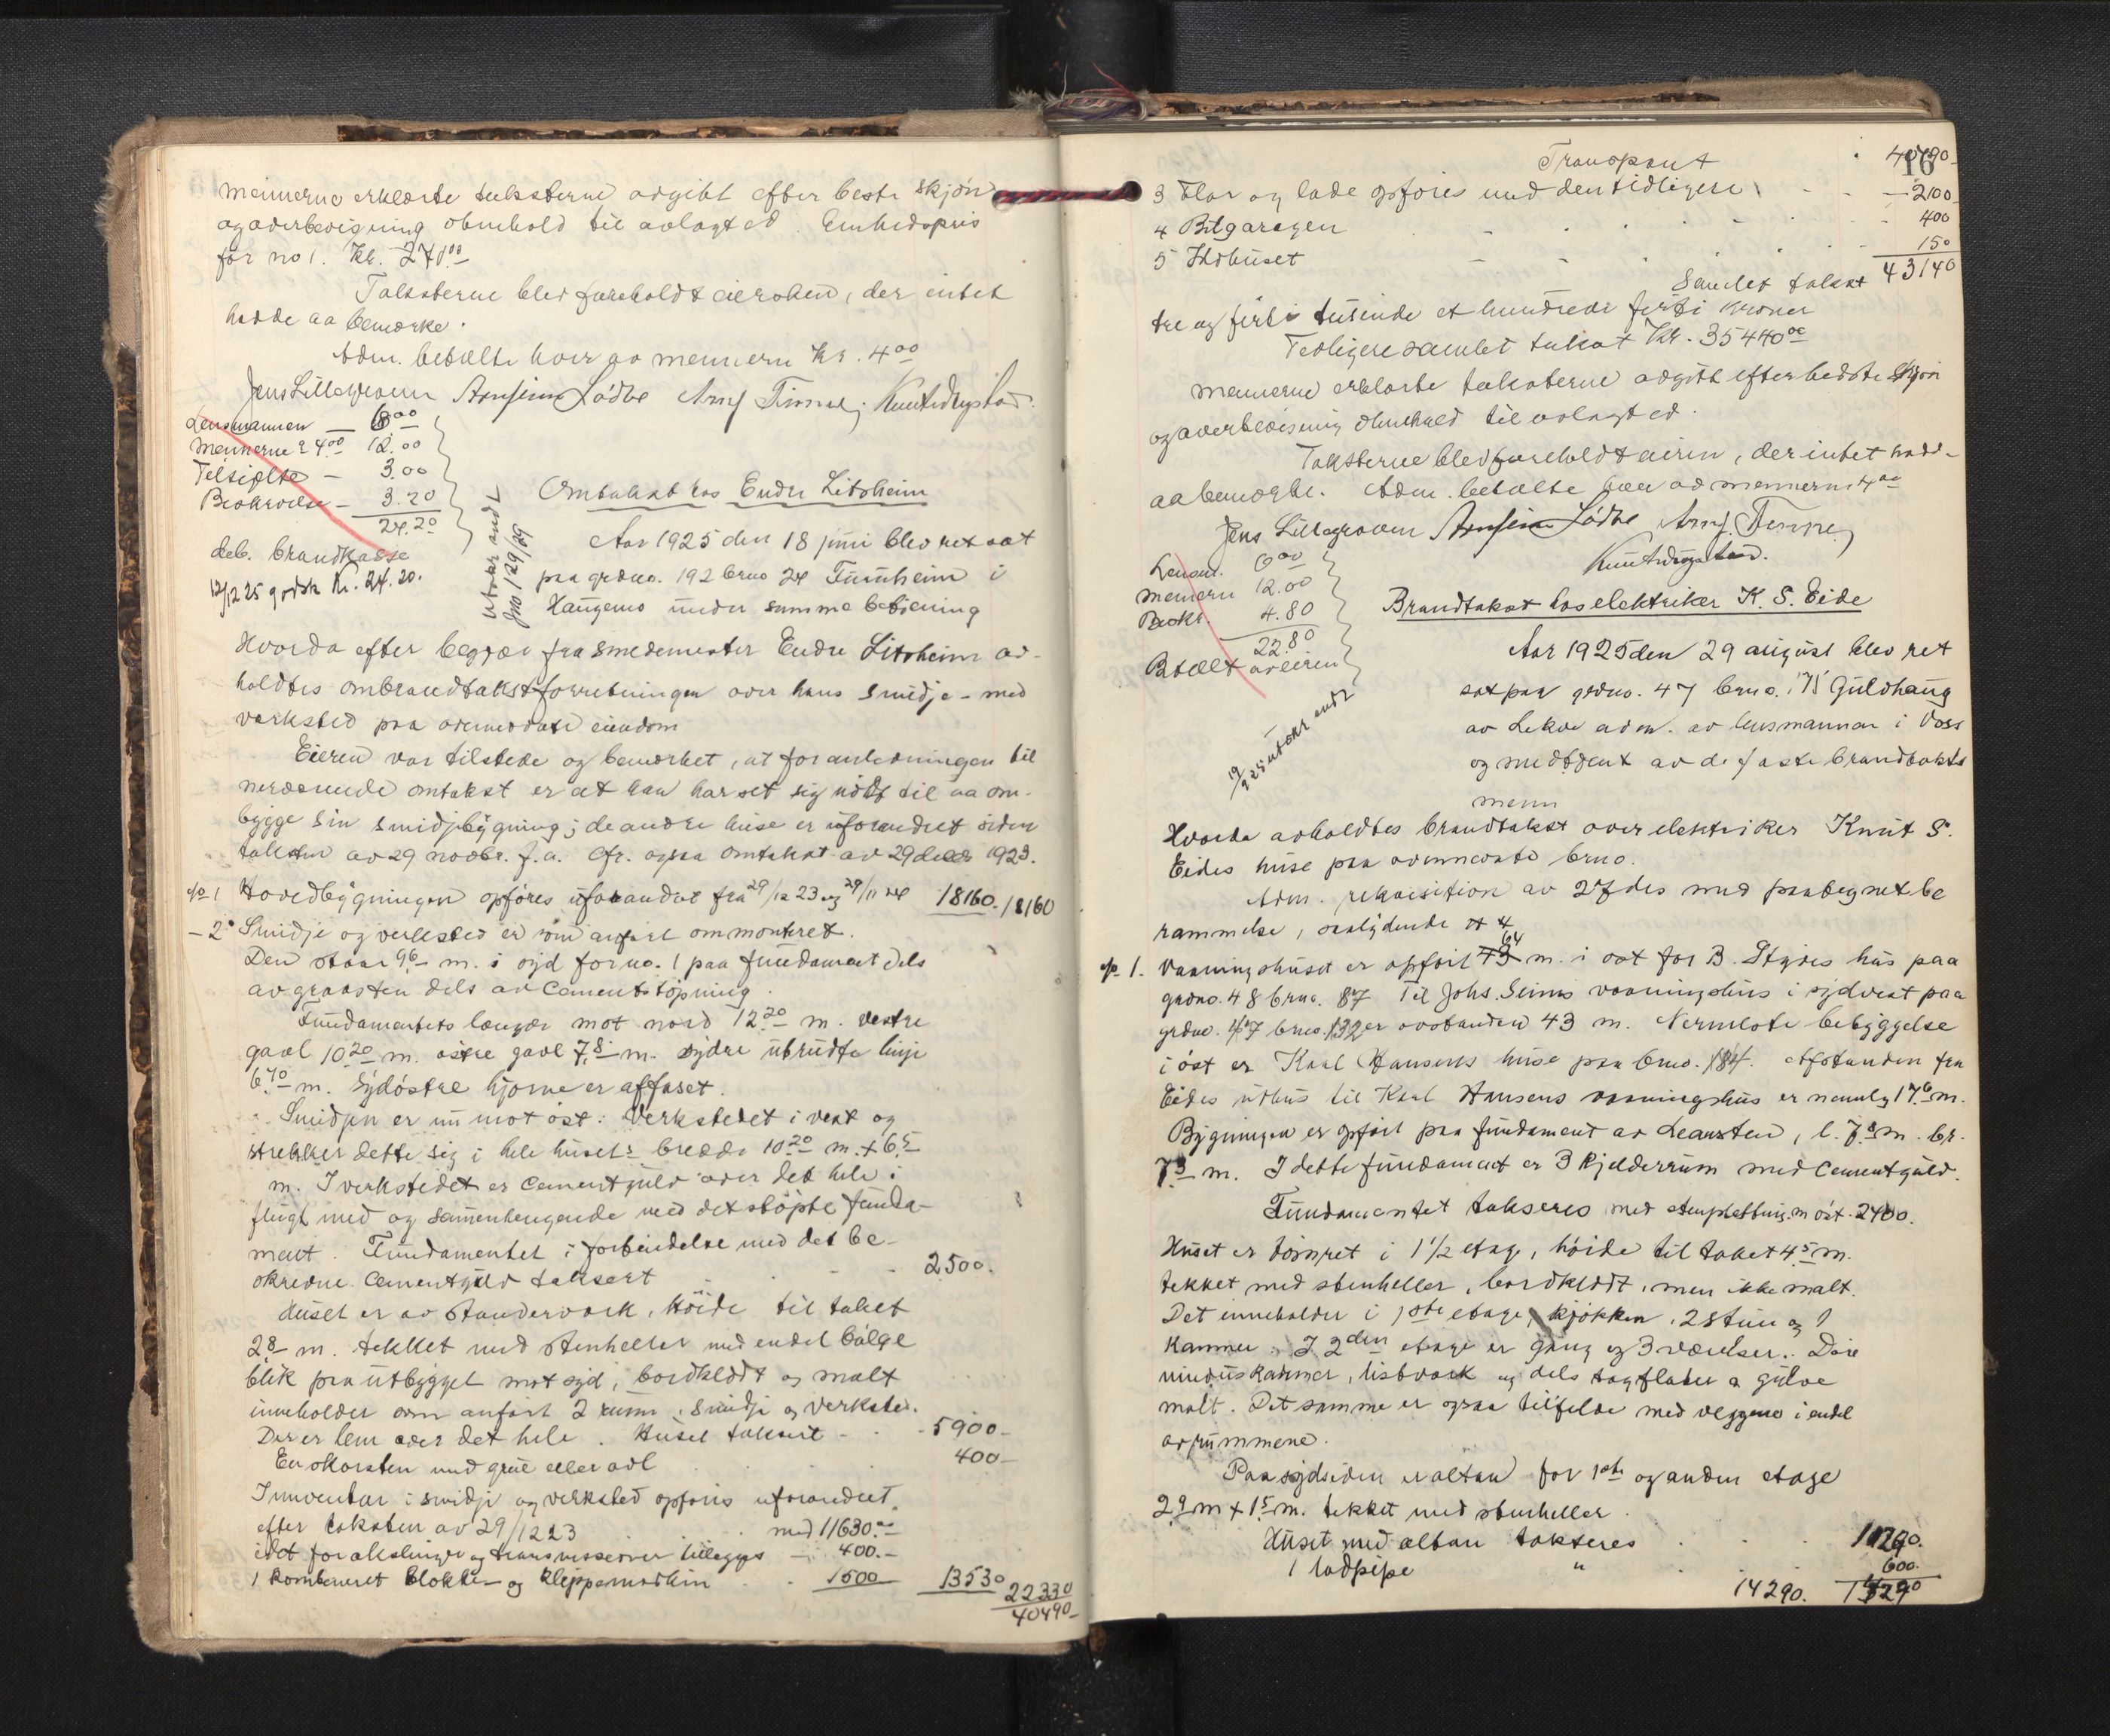 mennerne erklærte taksterne avgitt efter beste skjön
og overbevisning i henhold til avlagt ed. Enhedspris
for no 1. Kr.
Taksterne blev foreholdt eieren, der intet
hadde aa bemerke.
Adm. betalte hver av mennern Kr. 4 00
Jens Lillegraven
Lensmannen — 6 00
Mennerne à 4 00 12.00
Tilsigelse — 3.00
Beskrivelse — 3.20
24.20
deb. brandkasse
12/12 25 godsk Kr. 24.20.
Omtakst hos Endre Litsheim
Aar 1925 den 18 juni blev ret sat
paa grdno. 192 brno 24 Furuheim i
Haugamo under samme betjening
Hvorda efter begjær fra smedemester Endre Litsheim av-
holdtes ombrandtakstforretningen over hans smidje - med
verksted paa ovennevnte eiendom
Eieren var tilstede og bemerket, at foranledningen til
nerværende omtakst er at han har set sig nödt til aa om-
bygge sin smidjebygning; de andre huse er uforandret siden
taksten av 29 novbr. f.a. Cfr. ogsaa omtakst av 29 decbr 1923.
No 1 Hovedbygningen opföres uforandret fra 29/12 23 og 29/11 24 18160. 18160
- 2 Smidje og verksted er som anfört ommonteret.
Den staar 9 6 m. i syd for no. 1 paa fundament dels
av graasten dels av cementstöpning.
Fundamentets længde mot nord 12 20 m. vestre
gavl 10 20 m. östre gavl 7 8 m. sydre utbrudte linje
6 70 m. Sydöstre hjörne er affaset.
Smidjen er nu mot öst: Verkstedet i vest og
strekker dette sig i hele husets bredde 10 20 m. + 6 5
m. I verkstedet er cementgulv over det hele i
flugt med og sammenhengende med det stöpte funda-
ment. Fundamentet i forbindelse med det be-
skrevne cementgulv taksert 2500.
Huset er av standerverk, höide til taket
2 8 m. tekket med stenheller med endel bölge
blik paa utbygget mot syd, bordklædt og malt
inneholder som anfört 2 rum, smidje og verksted.
Der er lem over det hele. Huset taksert 5900 -
En skorsten med grue eller avl 400 -
Innventar i smidje og verksted opföres uforandret
efter taksten av 29/12 23 med 11630.00
idet for akslinger og transmissioner tillegges - 400.-
1 kombineret blokke- og klippemaskin 1500 13530 22330
40490 -
16
Transport 40490 -
3 Flor og lade opföres med den tidligere - 2100
4 Bilgaragen 400
5 Ildhuset 150
Samlet takst 43140
tre og firti tusinde et hundrede firti kroner
Tidligere samlet takst Kr. 35440 00
Mennerne erklærte taksterne avgitt efter bedste skjön
og overbevisning i henhold til avlagt ed.
Taksterne blev foreholdt eieren, der intet hadde
aa bemerke. Adm. betalte hver av mennerne 4 00
Jens Lillegraven
Lensm. 6 00
Mennern 12.00
Beskr. 4.80
22.80
Betalt av eieren
Brandtakst hos elektriker K. S. Eide
Aar 1925 den 29 august blev ret
sat paa grdno. 47 brno. 175 Guldhaug
av Lekve adm. av lensmannen i Voss
og medtjent av de faste brandtakst
menn
Hvorda avholdtes brandtakst over elektriker Knut S.
Eides huse paa ovennevnte brno.
Adm. rekvisition av 27 des med paategnet be
rammelse, saalydende
No. 1. Vaaningshuset er opfört 64 m. i öst for B. Stydes hus paa
grdno. 48 brno. 87 Til Johs. Seims vaaningshus i sydvest paa
grdno. 47 brno. 132 er avstanden 43 m. Nermeste bebyggelse
i öst er Karl Hansens huse paa brno. 184. Afstanden fra
Eides uthus til Karl Hansens vaaningshus er nemlig 17 6 m.
Bygningen er opfört paa fundament av graasten, l. 7 8 m. br.
7 3 m. I dette fundament er 3 kjelderrum med cementgulv.
Fundamentet takseres med 2400.
Huset er tömret i 1 1/2 etage, höide til taket 4 5 m.
tekket med stenheller, bordklædt, men ikke malt.
Det inneholder i 1ste etage kjökken, 2 stuer og 1
kammer. I 2den etage er gang og 3 værelser. Döre
vinduskarmer, listverk og dels tagflater & gulve
malt. Det samme er ogsaa tilfelde med veggene i endel
av rummene.
Paa sydsiden er altan for 1ste og anden etage
2 9 m + 1 5 m. tekket med stenheller.
Huset med altan takseres 11290.
1 ladpipe " 600.
14290. 14290